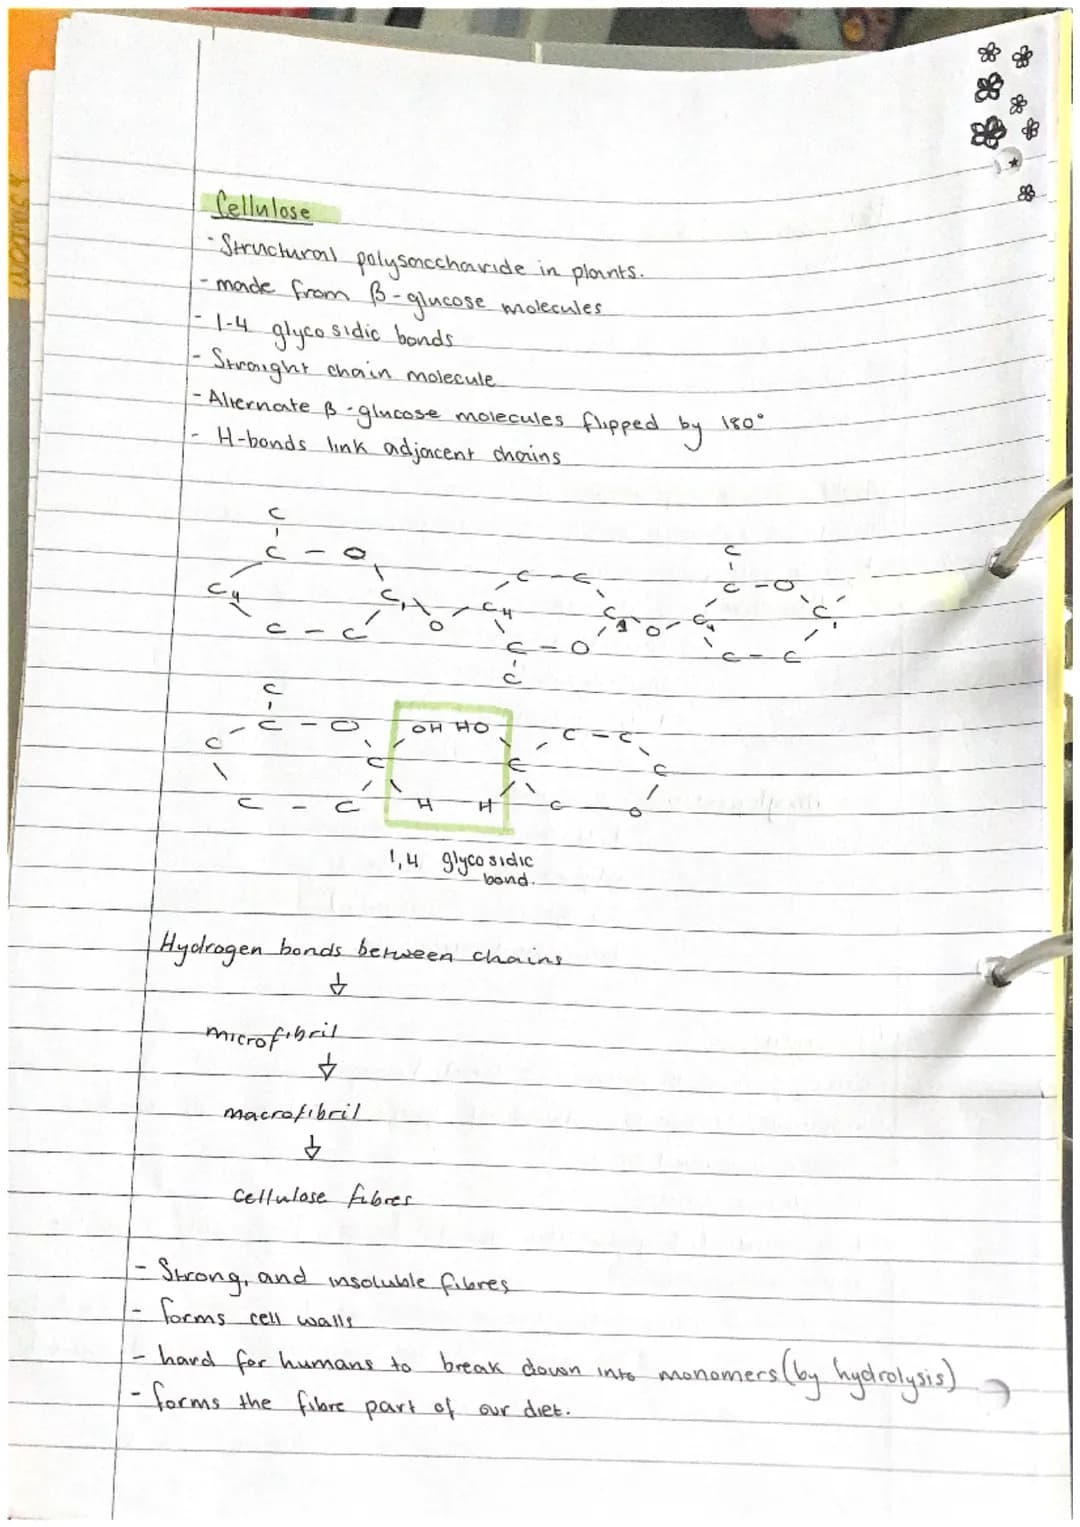 Cellulose
- Structural polysaccharide in plants.
- made from β-glucose molecules
- 1-4 glycosidic bonds
- Straight chain molecule
- Alternate β-glucose molecules flipped by 180°
- H-bonds link adjacent chains
C
C - O
C - C
C
C - O
C4
C1
C4
C1
C4
C1
O
O
C - C
C - O
C - C
C
C
C - O
OH HO
C - C
C
C
C
C
C - C
H H
C
O
1,4 glycosidic
bond.
Hydrogen bonds between chains
microfibril
macrofibril
Cellulose fibres
- Strong, and insoluble fibres
- forms cell walls
- hard for humans to break down into monomers (by hydrolysis)
- forms the fibre part of our diet.